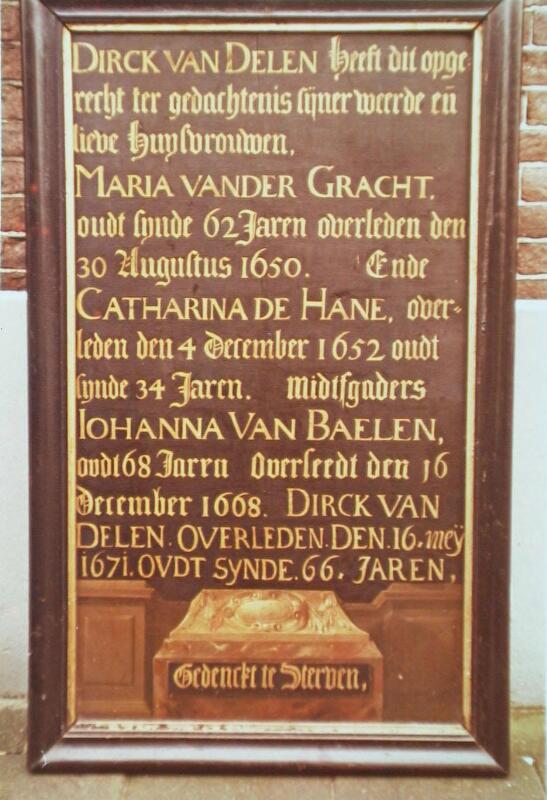 DIRCK VAN DELEN heeft dit opge-
recht ter gedachtenis sijner weerde eñ
lieve Huysvrouwen.
MARIA VANDER GRACHT,
oudt synde 62 Jaren overleden den
30 Augustus 1650. Ende
CATHARINA DE HANE, over-
leden den 4 December 1652 oudt
synde 34 Jaren. midtsgaders
IOHANNA VAN BAELEN,
oudt 68 Jaren Overleedt den 16
December 1668. DIRCK VAN
DELEN. OVERLEDEN. DEN. 16. meÿ
1671. OVDT SYNDE. 66. JAREN,
Gedenckt te Sterven,